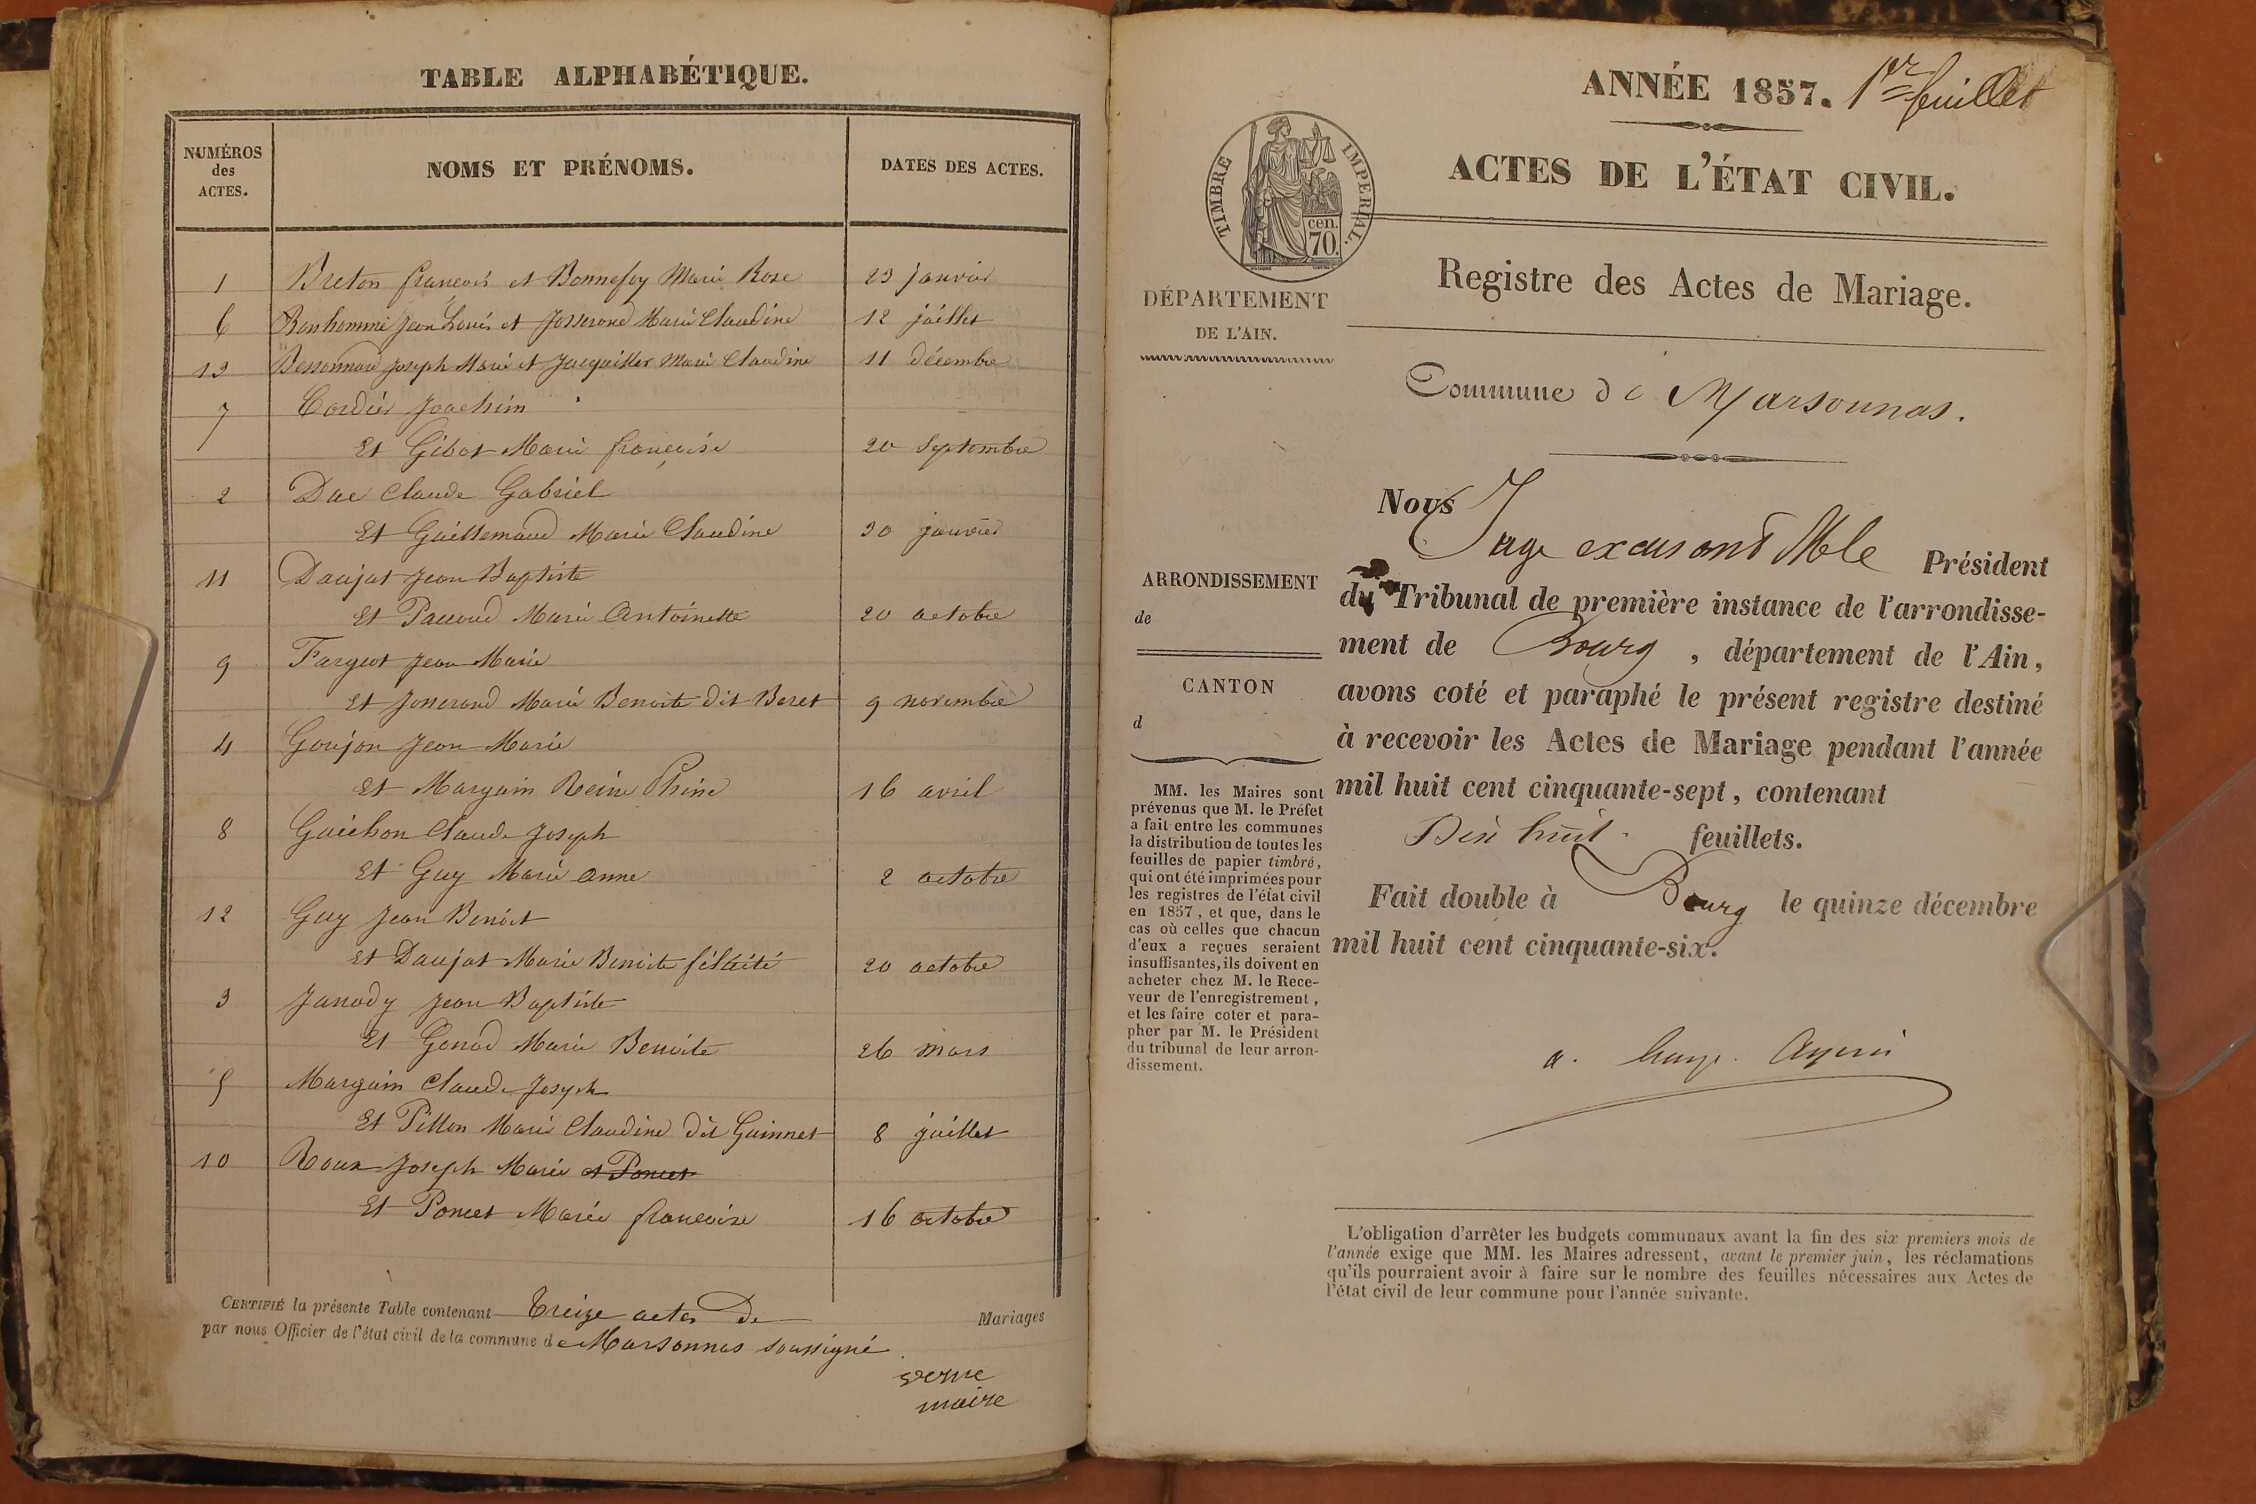 TABLE ALPHABÉTIQUE.
NUMÉROS des ACTES.
NOMS ET PRÉNOMS.
DATES DES ACTES.
1 Breton françois et Bonnefoy Marie Rose 23 janvier
6 Bonhomme Jean Louis et Josserand Marie Claudine 12 juillet
13 Bessonnard Joseph Marie et Jacquiller Marie Claudine 11 décembre
7 Cordier Joachim
Et Gibot Marie françoise 20 Septembre
2 Duc Claude Gabriel
Et Guillemaud Marie Claudine 30 janvier
11 Daujat Jean Baptiste
Et Pauoud Marie Antoinette 20 octobre
9 Fargeot Jean Marie
Et Josserand Marie Benoite dit Beret 9 novembre
4 Goujon Jean Marie
Et Margain Reine Phine 16 avril
8 Guichon Claude Joseph
Et Guy Marie Anne 2 octobre
12 Guy Jean Benoit
Et Daujat Marie Benoite félicité 20 octobre
3 Janody Jean Baptiste
Et Genod Marie Benoite 26 Mars
5 Margain Claude Joseph
Et Pillon Marie Claudine dit Guinnet 8 juillet
10 Roux Joseph Marie et Poncet
Et Poncet Marie françoise 16 octobre
CERTIFIÉ la présente Table contenant Treize actes De Mariages
par nous Officier de l'état civil de la commune de Marsonnas soussigné
verne
maire
ANNÉE 1857. 1er feuillet
ACTES DE L'ÉTAT CIVIL.
TIMBRE IMPERIAL.
cen.
70.
DÉPARTEMENT
DE L'AIN.
Registre des Actes de Mariage.
Commune de Marsonnas.
ARRONDISSEMENT
de
CANTON
d
MM. les Maires sont
prévenus que M. le Préfet
a fait entre les communes
la distribution de toutes les
feuilles de papier timbré,
qui ont été imprimées pour
les registres de l'état civil
en 1857, et que, dans le
cas où celles que chacun
d'eux a reçues seraient
insuffisantes, ils doivent en
acheter chez M. le Rece-
veur de l'enregistrement,
et les faire coter et para-
pher par M. le Président
du tribunal de leur arron-
dissement.
Nous
Juge Président
du Tribunal de première instance de l'arrondisse-
ment de Bourg, département de l'Ain,
avons coté et paraphé le présent registre destiné
à recevoir les Actes de Mariage pendant l'année
mil huit cent cinquante-sept, contenant
Dix huit feuillets.
Fait double à Bourg le quinze décembre
mil huit cent cinquante-six.
L'obligation d'arrêter les budgets communaux avant la fin des six premiers mois de
l'année exige que MM. les Maires adressent, avant le premier juin, les réclamations
qu'ils pourraient avoir à faire sur le nombre des feuilles nécessaires aux Actes de
l'état civil de leur commune pour l'année suivante.